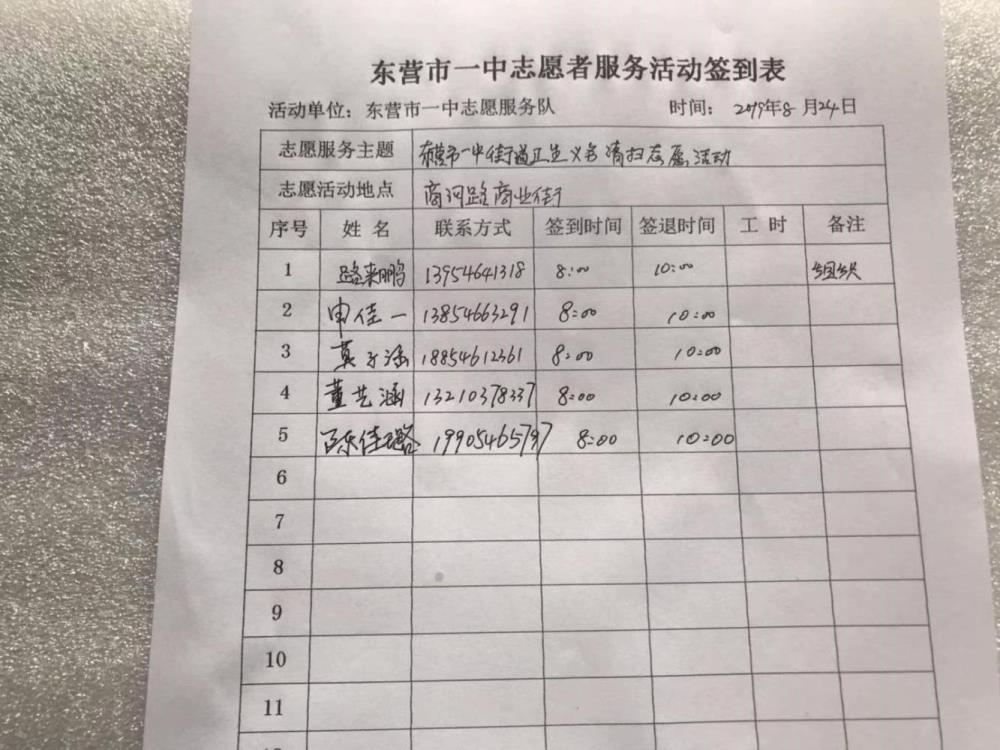 东营市一中志愿者服务活动签到表
活动单位：东营市一中志愿服务队 时间：2019年8月24日
志愿服务主题 东营市一中街道卫生义务清扫志愿活动
志愿活动地点 商河路商业街
序号 姓名 联系方式 签到时间 签退时间 工时 备注
1 路来鹏 13954641318 8:00 10:00 组织
2 申佳一 13854663291 8:00 10:00
3 子涵 18854612361 8:00 10:00
4 董艺涵 13210378337 8:00 10:00
5 佳璐 8:00 10:00
6
7
8
9
10
11